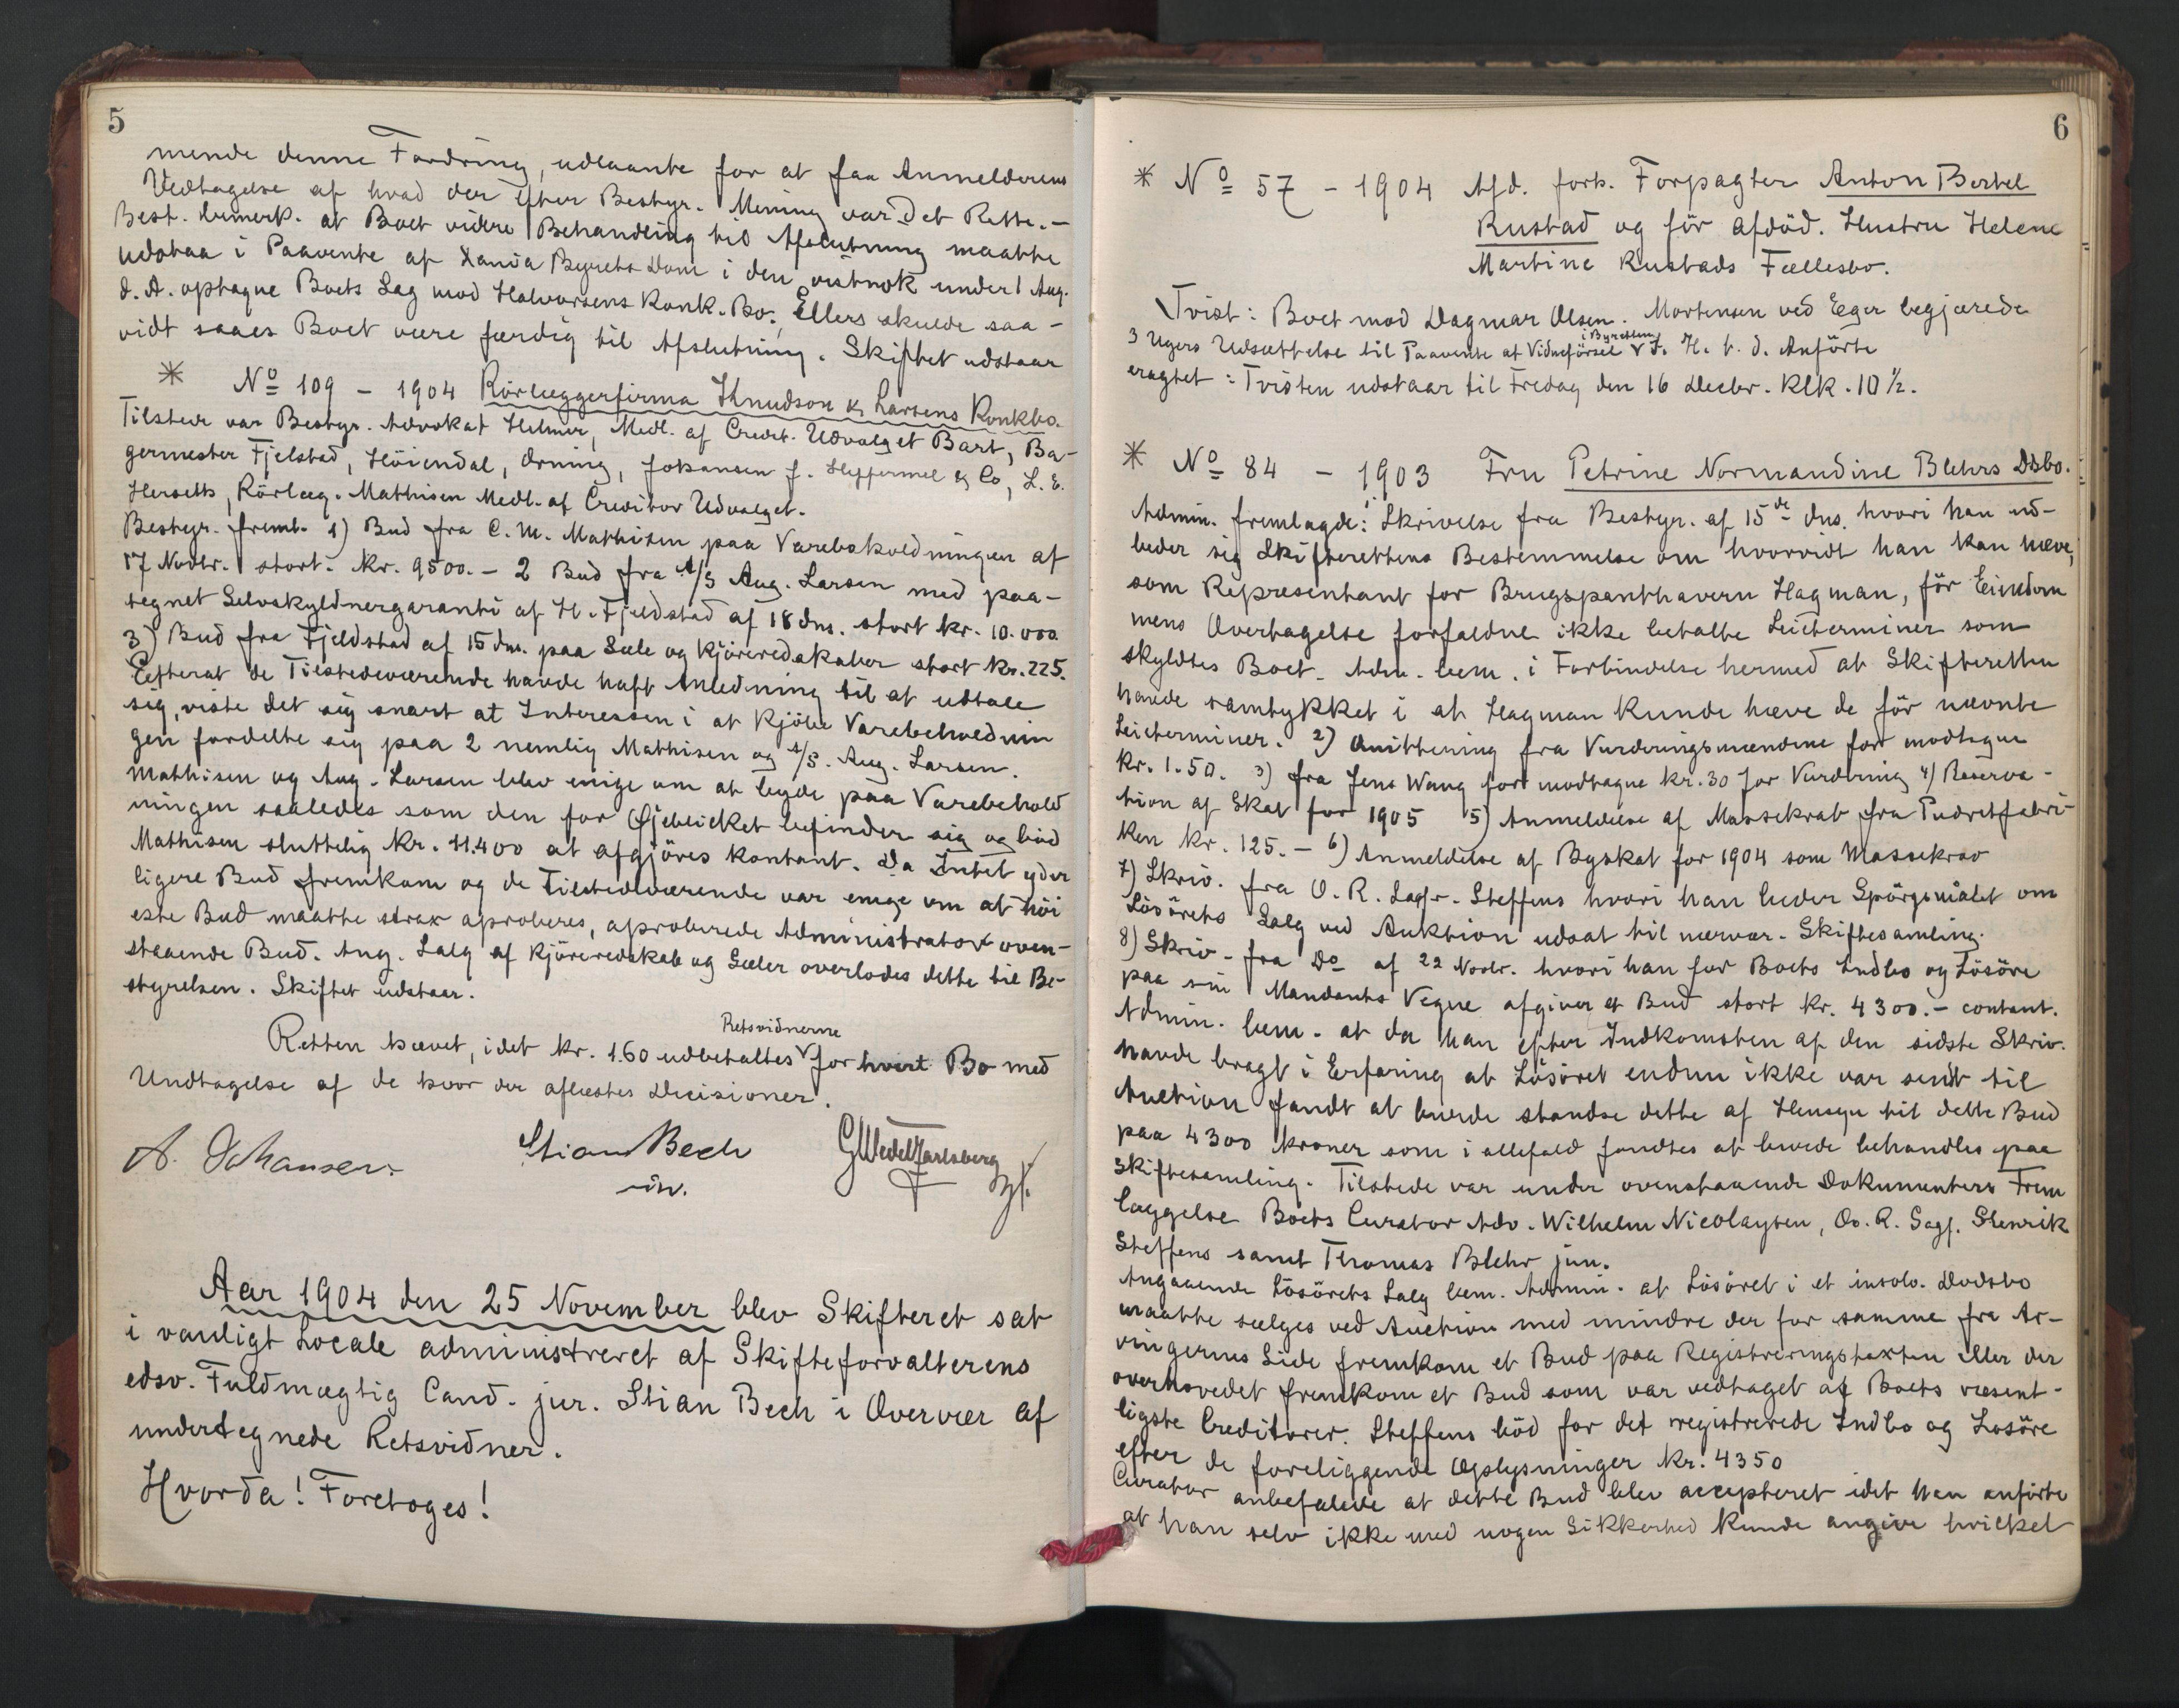 5
mende denne Fordring, udlaante for at faa Anmelderens
Vedtagelse af hvad der efter Bestyr. Mening var det Rette. –
Best. bemerk. at Boet videre Behandling til Afslutning maatte
udstaa i Paavente af Xania Byrets Dom i den vistnok under 1 Aug.
d. A. optagne Boets Sag mod Halvorsens Konk. Bo. Ellers skulde saa-
vidt saaes Boet være færdig til Afslutning. Skiftet udstaar
* No 109 – 1904 Rörlæggerfirma Knudson & Larsens Konkbo.
Tilstede var Bestyr. Advokat Helmer, Medl. af Credit. Udvalget Bart, Ba-
germester Fjelstad, Höiendal, Örning, Johansen f. Heffermel & Co, L. E.
Herseth, Rörlæg. Mathisen Medl. af Creditor Udvalget.
Bestyr. freml. 1) Bud fra C. M. Mathisen paa Varebeholdningen af
17 Novbr. stort. Kr. 9500. – 2 Bud fra A/S Aug. Larsen med paa-
tegnet Selvskyldnergaranti af H. Fjeldstad af 18 dns. stort kr. 10.000
3) Bud fra Fjeldstad af 15 dns. paa Sæle og Kjöreredskaber stort Kr. 225.
Efterat de Tilstedeværende havde haft Anledning til at udtale
sig, viste det sig snart at Interessen i at Kjöbe Varebeholdnin
gen fordelte sig paa 2 nemlig Mathisen og A/S. Aug. Larsen.
Mathisen og Aug. Larsen blev enige om at byde paa Varebehold
ningen saaledes som den for Öjeblicket befinder sig og böd
Mathisen sluttelig Kr. 11.400 at afgjöres kontant. Da Intet yder
ligere Bud fremkom og de Tilstedeværende var enige om at höi
este Bud maatte strax aproberes, aproberede Administrator oven-
staaende Bud. Ang. Salg af Kjöreredskab og Sæler overlodes dette til Be-
styrelsen. Skiftet udstaar.
Retsvidnerne
Retten hævet, idet Kr. 1.60 udbetaltes v for hvert Bo med
Undtagelse af de hvor der aflæstes Decisioner.
A. Johansen. Stian Bech GWedelJarlsberg
Aar 1904 den 25 November blev Skifteret sat
i vanligt Locale administreret af Skifteforvalterens
edsv. Fuldmægtig Cand. jur. Stian Bech i Overvær af
undertegnede Retsvidner.
Hvorda! Foretoges!
6
* No 57 – 1904 Afd. forh. Forpagter Anton Bertel
Rustad og för afdöd. Hustru Helene
Martine Rustads Fællesbo.
Tvist: Boet mod Dagmar Olsen. Mortensen ved Eger begjærede
i Byretten
3 Ugers Udsættelse til Paavente af Vidneförsel v J. H. t. d. Anförte
eragtet: Tvisten udstaar til Fredag den 16 Decbr. Klk. 10 ½.
* No 84 – 1903 Fru Petrine Normandine Blehrs Dsbo.
Admin. fremlagde: 1. Skrivelse fra Bestyr. af 15de dns. hvori han ud-
beder sig Skifterettens Bestemmelse om hvorvidt han kan hæve,
som Representant for Brugspanthavern Hagman, för Eiendom
mens Overtagelse forfaldne ikke betalte Leieterminer som
skyldtes Boet. Adm. bem. i Forbindelse hermed at Skifteretten
havde samtykket i at Hagman Kunde hæve de för nævnte
Leieterminer. 2) Quittering fra Vurderingsmændene for modtagne
Kr. 1.50. 3) fra Jens Wang for modtagne Kr. 30 for Vurdering 4) Reserva-
tion af Skat for 1905 5) Anmeldelse af Massekrav fra Pudretfabri-
ken Kr. 125. – 6) Anmeldelse af Byskat for 1904 som Massekrav
7) Skriv. fra O. R. Sagfr. Steffens hvori han beder Spörgsmålet om
Lösörets Salg ved Auktion udsat til nærvær. Skiftesamling.
8) Skriv. fra Do af 22 Novbr. hvori han for Boets Indbo og Lösöre
paa sin Mandants Vegne afgiver et Bud stort Kr. 4300. – contant.
Admin. bem. at da han efter Indkomsten af den sidste Skriv.
havde bragt i Erfaring at Lösöret endnu ikke var sendt til
Auction fandt at burde standse dette af Hensyn til dette Bud
paa 4300 Kroner som i allefald fandtes at burde behandles paa
Skiftesamling. Tilstede var under ovenstaaende Dokumenters Frem
læggelse Boets Curator Adv. Wilhelm Nicolaysen, Ov. R. Sagf. Henrik
Steffens samt Thomas Blehr jun.
Angaaende Lösörets Salg bem. Admin. at Lösöret i et insolv. Dödsbo
maatte sælges ved Auction med mindre der for samme fra Ar-
vingernes Side fremkom et Bud paa Registreringstaxten eller der
overhovedet fremkom et Bud som var vedtaget af Boets væsent-
ligste Creditorer. Steffens böd for det registrerede Indbo og Lösöre
efter de foreliggende Oplysninger Kr. 4350
Curator anbefalede at dette Bud blev accepteret idet han anförte
at han selv ikke med nogen Sikkerhed Kunde angive hvilket